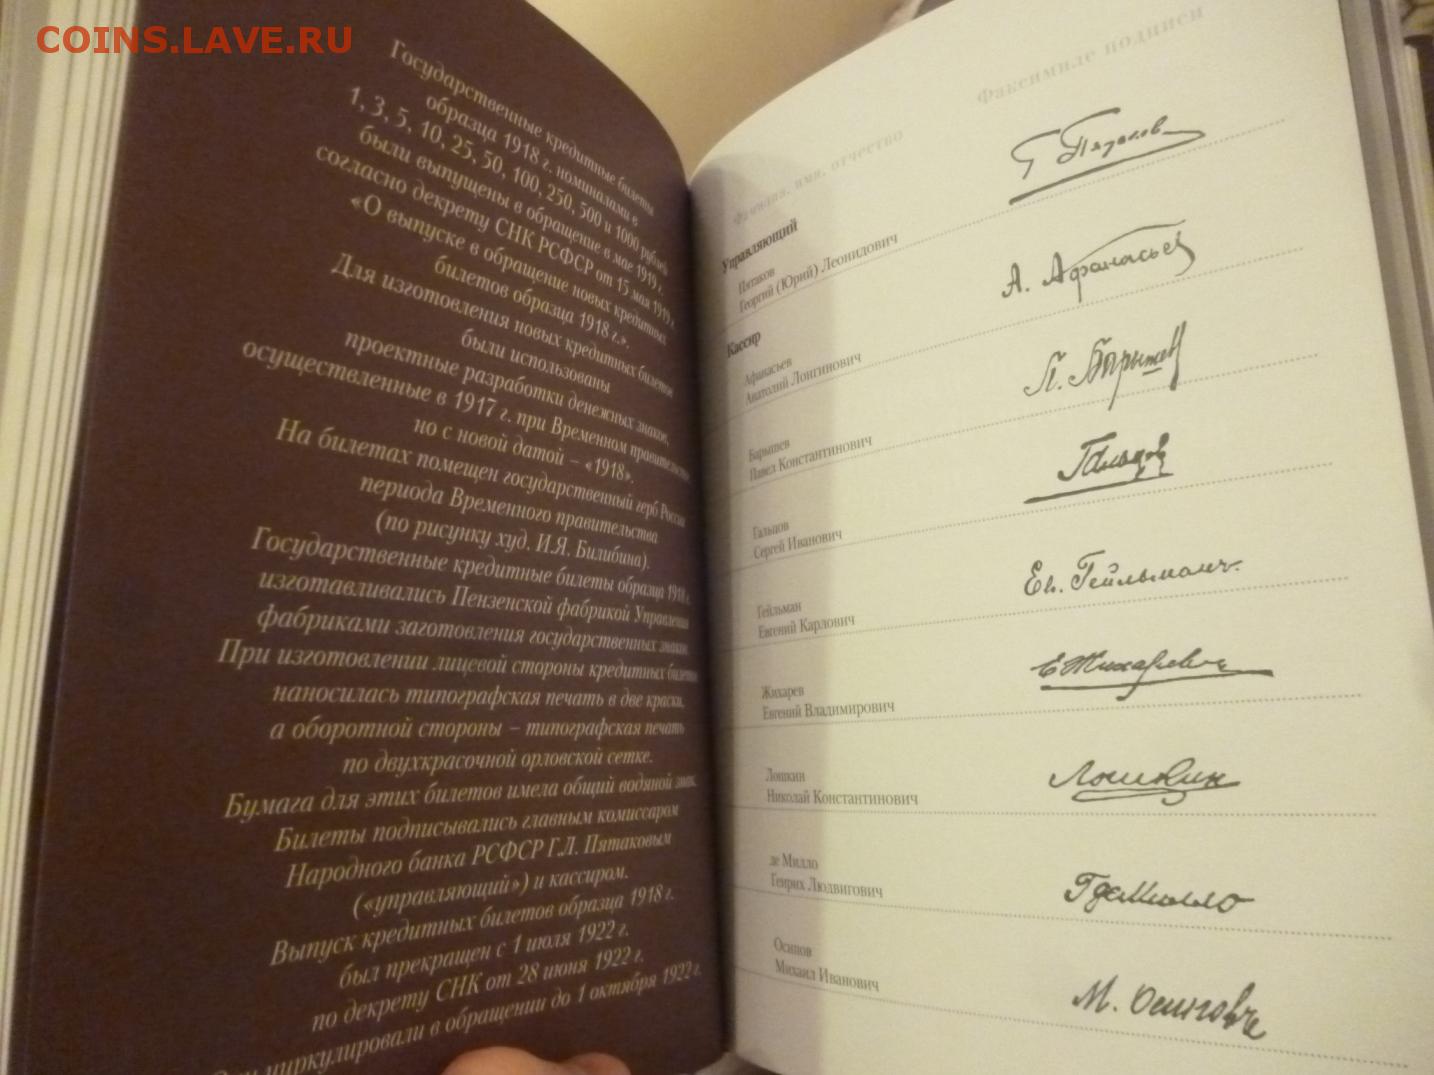 COINS.LAVE.RU
Государственные кредитные билеты
образца 1918 г. номиналами в
1, 3, 5, 10, 25, 50, 100, 250, 500 и 1000 рублей
были выпущены в обращение в мае 1919 г.
согласно декрету СНК РСФСР от 15 мая 1919 г.
«О выпуске в обращение новых кредитных
билетов образца 1918 г.».
Для изготовления новых кредитных билетов
были использованы
проектные разработки денежных знаков,
осуществленные в 1917 г. при Временном правительстве
но с новой датой – «1918».
На билетах помещен государственный герб России
периода Временного правительства
(по рисунку худ. И.Я. Билибина).
Государственные кредитные билеты образца 1918 г.
изготавливались Пензенской фабрикой Управления
фабриками заготовления государственных знаков.
При изготовлении лицевой стороны кредитных билетов
наносилась типографская печать в две краски,
а оборотной стороны – типографская печать
по двухкрасочной орловской сетке.
Бумага для этих билетов имела общий водяной знак.
Билеты подписывались главным комиссаром
Народного банка РСФСР Г.Л. Пятаковым
(«управляющий») и кассиром.
Выпуск кредитных билетов образца 1918 г.
был прекращен с 1 июля 1922 г.
по декрету СНК от 28 июня 1922 г.
циркулировали в обращении до 1 октября 1922 г.
Фамилия, имя, отчество
Факсимиле подписи
Управляющий
Пятаков
Георгий (Юрий) Леонидович
Г Пятаков
Кассир
Афанасьев
Анатолий Лонгинович
А. Афанасьев
Барышев
Павел Константинович
П. Барышев
Гальцов
Сергей Иванович
Гальцов
Гейльман
Евгений Карлович
Ев. Гейльманъ
Жихарев
Евгений Владимирович
Е Жихаревъ
Лошкин
Николай Константинович
Лошкин
де Милло
Генрих Людвигович
Г де Милло
Осипов
Михаил Иванович
М. Осиповъ